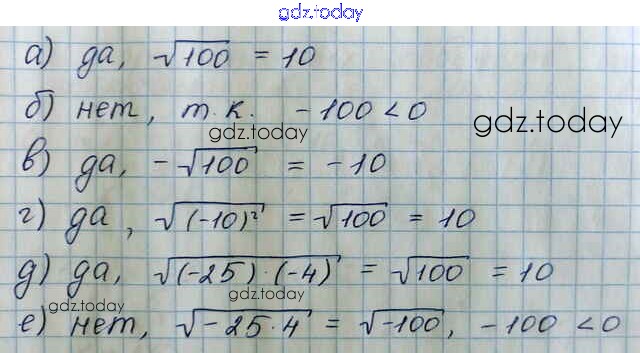 gdz.today
а) да, √100 = 10
б) нет, т.к. -100 < 0
gdz.today
gdz.today
в) да, -√100 = -10
г) да, √(-10)² = √100 = 10
д) да, √(-25)·(-4) = √100 = 10
gdz.today
gdz.today
е) нет, √-25·4 = √-100, -100 < 0